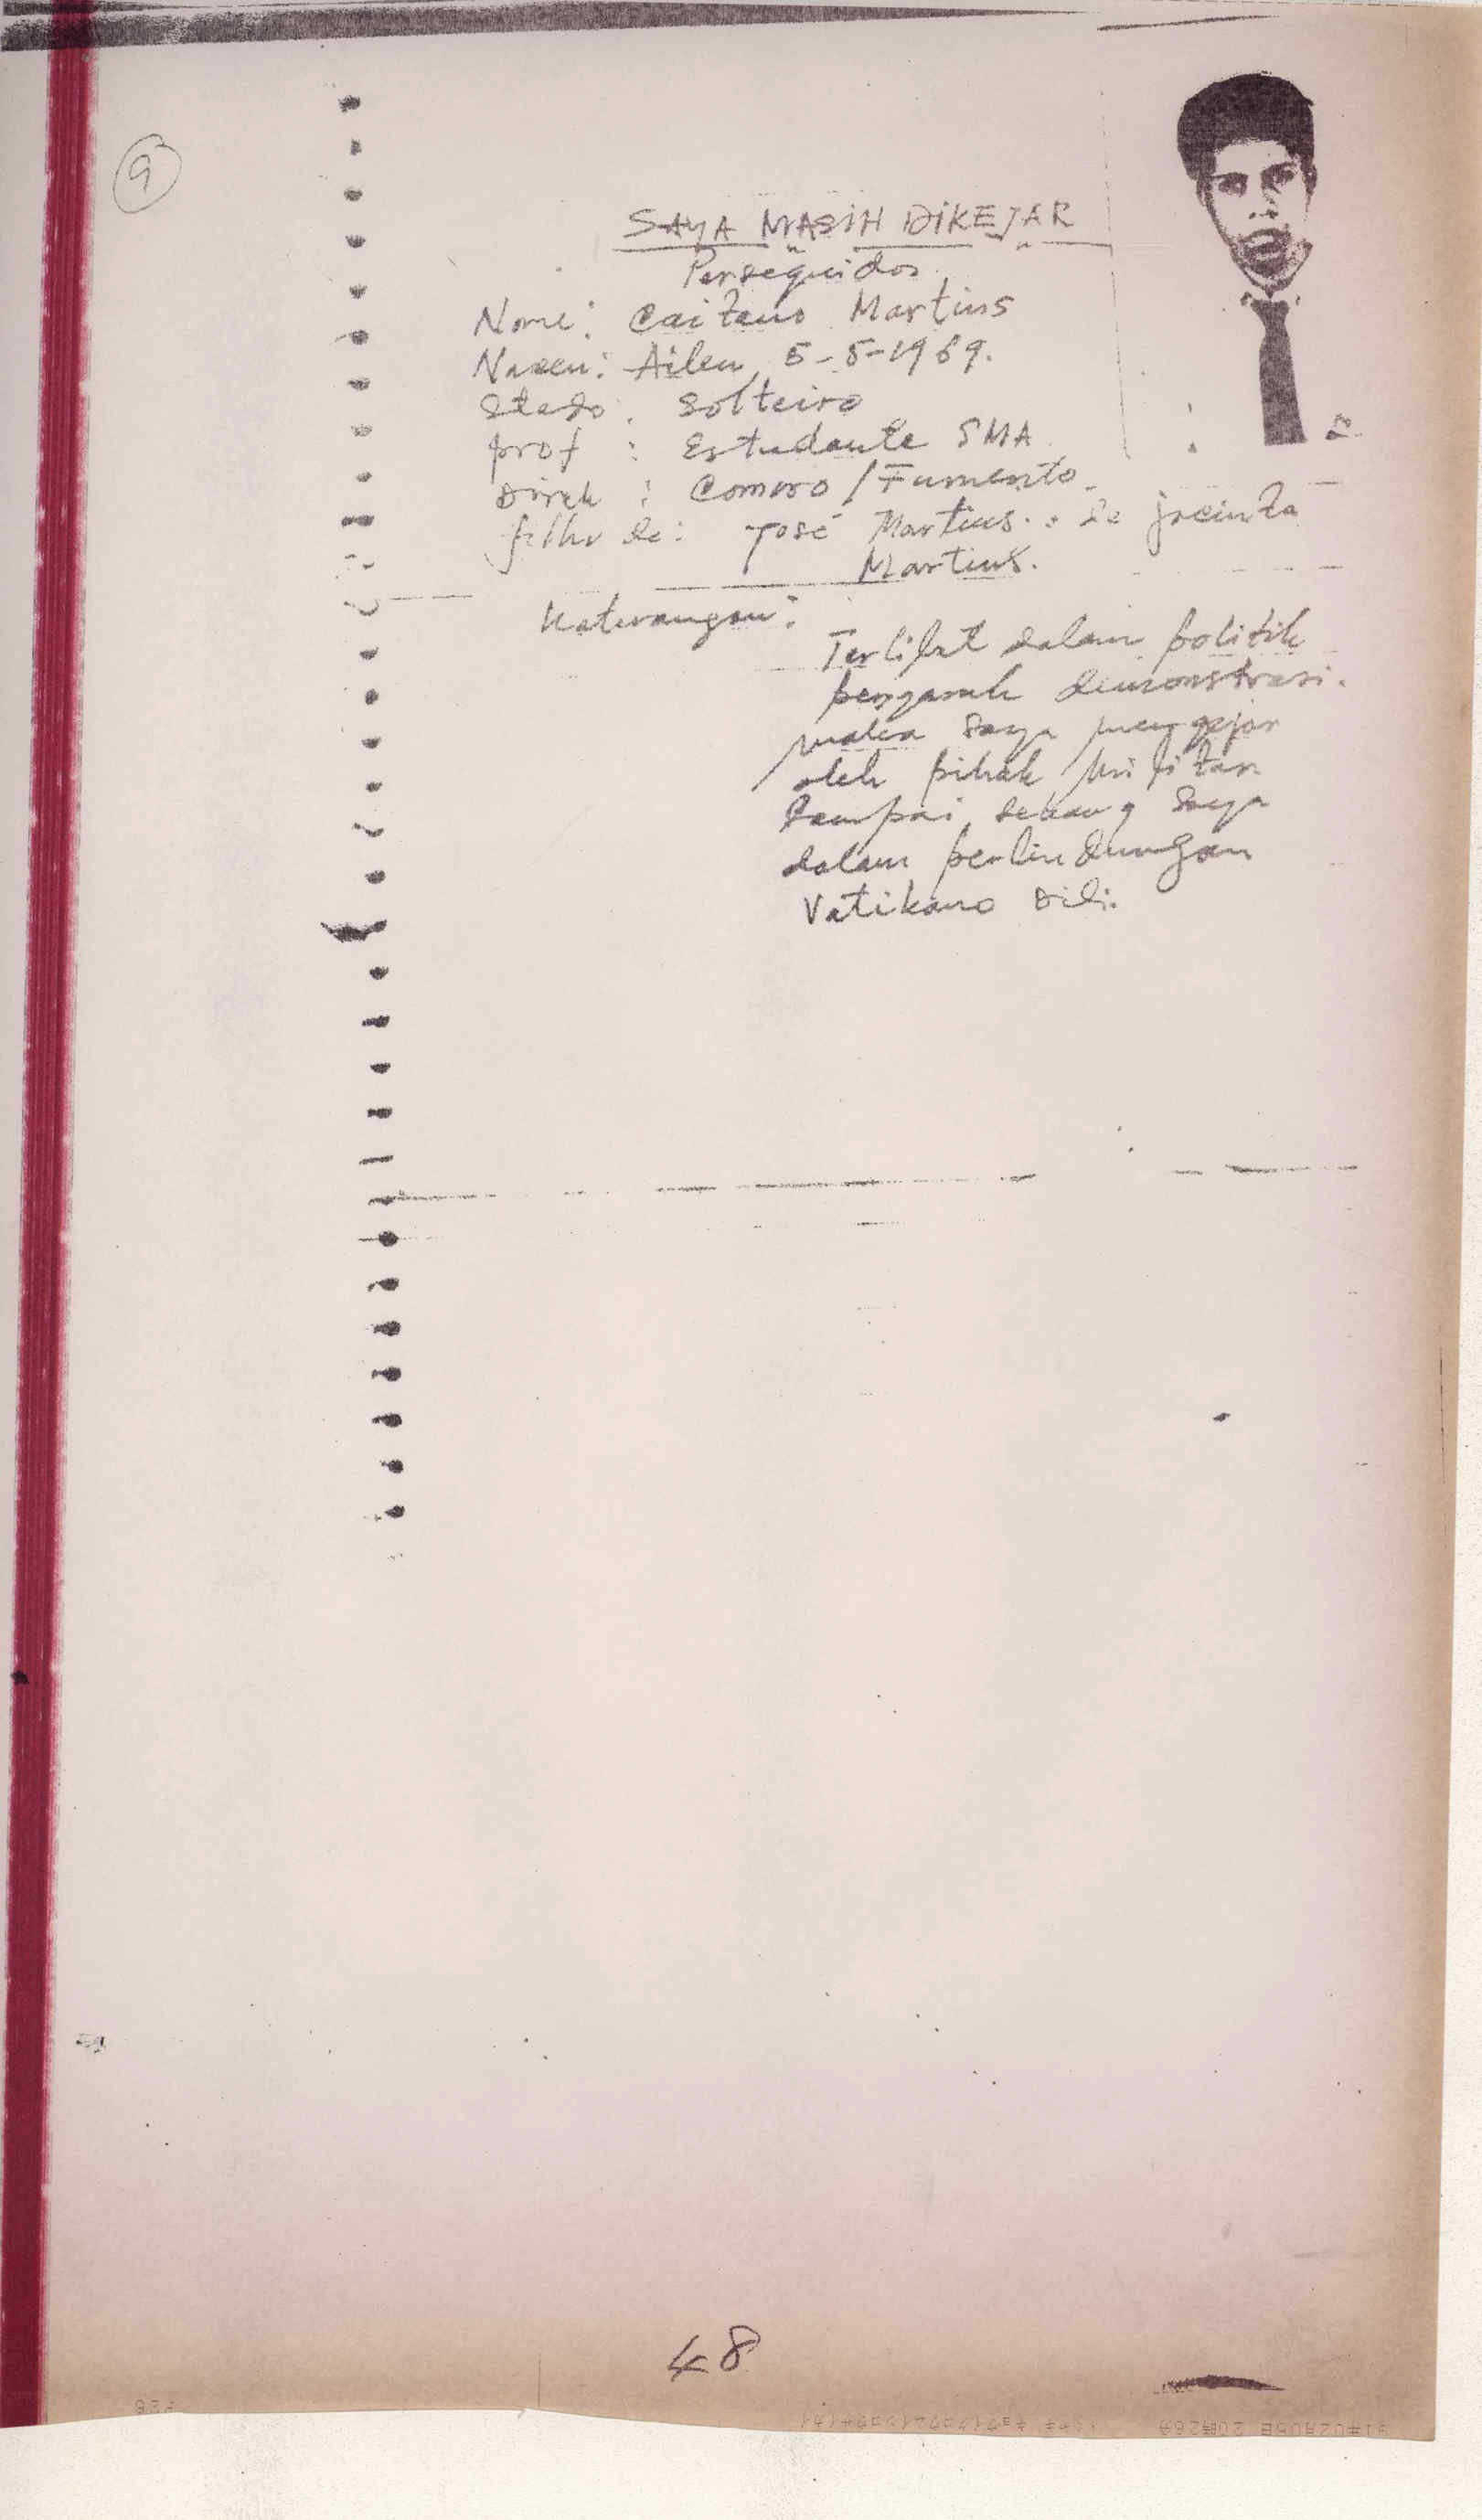 9
SAYA MASIH DIKEJAR
Perseguidos
Nome: Caitano Martins
Naseu: Aileu, 5-5-1969.
Stado: Solteiro
prof : Estudante SMA
Direk : Comoro / Fumento
filho de: José Martins. e de jacinta
Martins.
Katerangan:
Terlibat dalam politik
pengaruh demonstrasi.
maka saya mengejar
oleh pihak militar
sampai sekang saya
dalam perlindungan
Vatikano Dili.
48